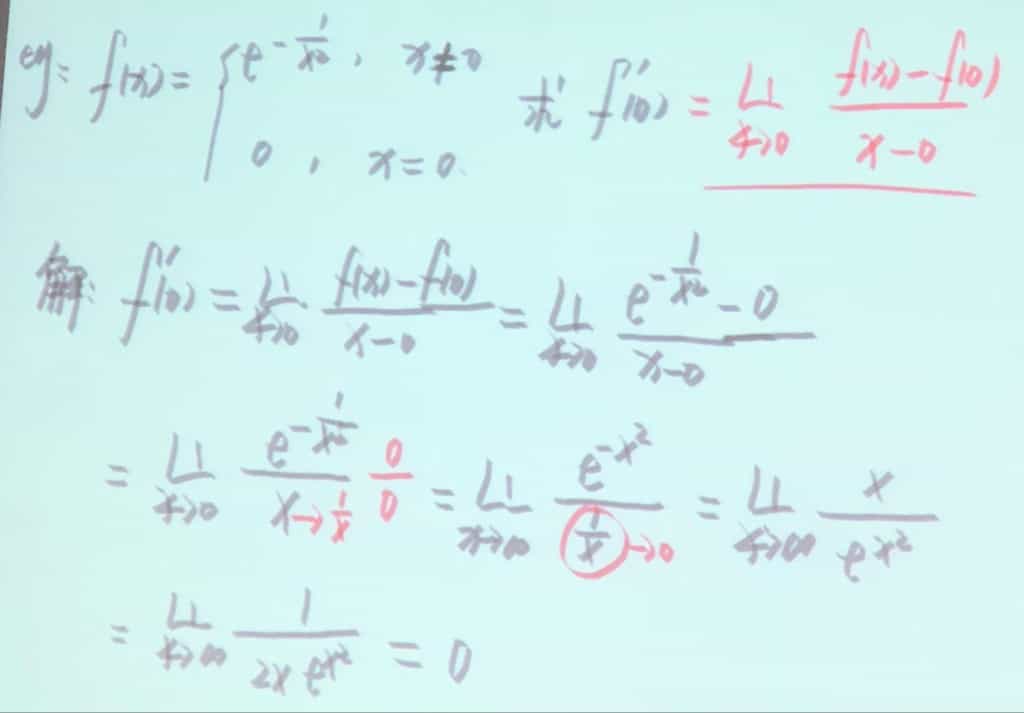 eg: f(x) = { e^{-1/x²}, x≠0
0, x=0.
求 f'(0) = lim_{x→0} (f(x)-f(0))/(x-0)
解: f'(0) = lim_{x→0} (f(x)-f(0))/(x-0) = lim_{x→0} (e^{-1/x²}-0)/(x-0)
= lim_{x→0} e^{-1/x²}/x →1/x 0/0 = lim_{x→∞} e^{-x²}/(1/x) →0 = lim_{x→∞} x/e^{x²}
= lim_{x→∞} 1/(2x e^{x²}) = 0